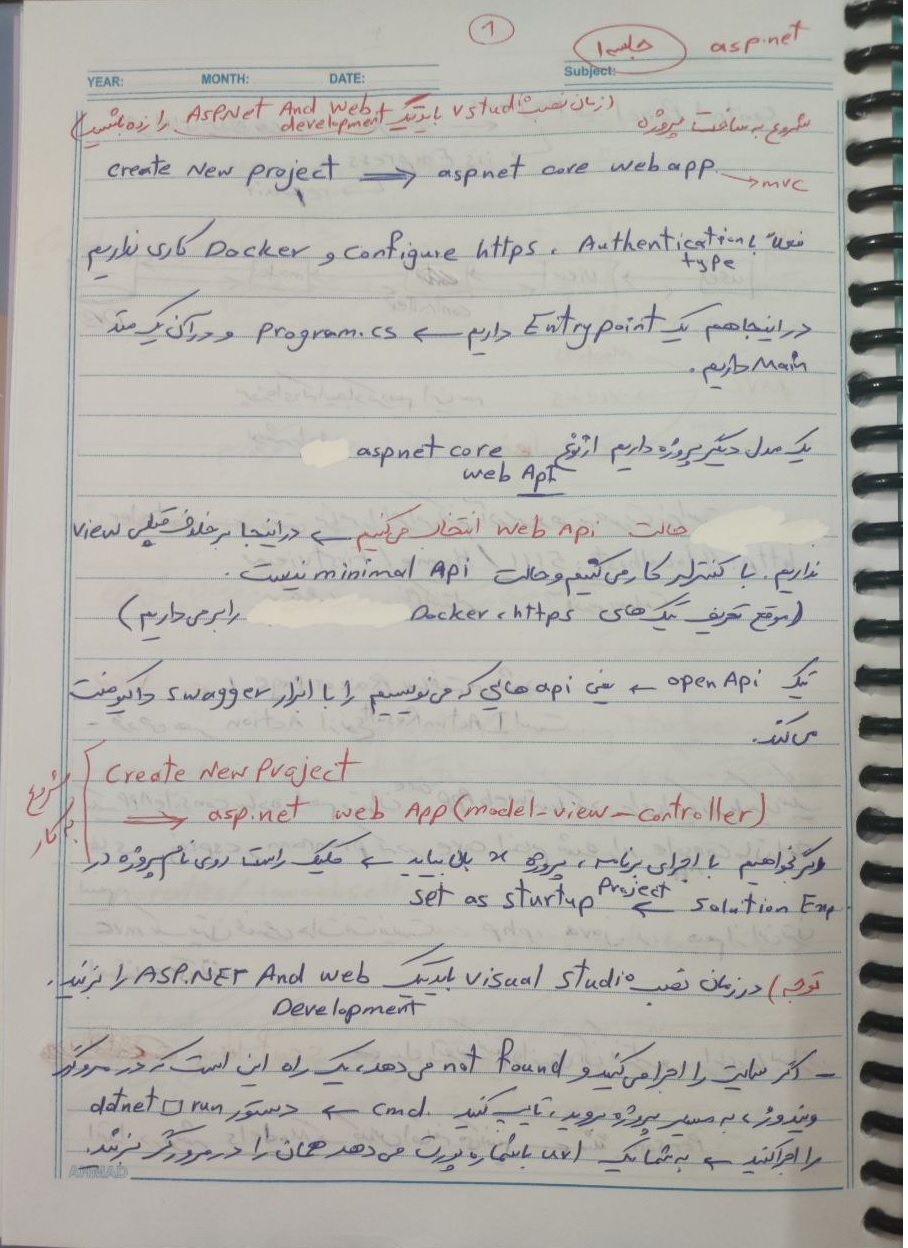 1
asp.net جلسه 1
YEAR: MONTH: DATE: Subject:
شروع به ساخت پروژه (از زمان نصب vstudio باید تیک Asp.Net And Web development را زده باشید)
create New project ⟹ aspnet core web app → mvc
فعلا با Authentication type ، Configure https و Docker کاری نداریم
در اینجا هم یک Entry point داریم ← program.cs و در آن یک متد
Main داریم.
یک مدل دیگر پروژه داریم از نوع aspnet core
web Api
حالت web Api انتخاب می‌کنیم ← در اینجا برخلاف قبلی view
نداریم. با کنترلر کار می‌کنیم و حالت minimal Api نیست.
(موقع تعریف تیک های https ، Docker را برمی‌داریم)
تیک open Api ← یعنی api هایی که می‌نویسیم را با ابزار swagger داکیومنت
می‌کند.
شروع به کار
Create New Project
⟹ asp.net web App (model-view-controller)
اگر بخواهیم با اجرای برنامه، پروژه x بالا بیاید ← کلیک راست روی نام پروژه در
solution Exp ← set as sturtup Project
توجه) در زمان نصب visual studio باید تیک ASP.NET And web
Development را بزنید.
- اگر سایت را اجرا می‌کنید و not found می‌دهد، یک راه این است که در مرورگر
ویندوز، به مسیر پروژه بروید، تایپ کنید cmd. ← دستور dotnet □ run
را اجرا کنید ← به شما یک url با شماره پورت می‌دهد همان را در مرورگر بزنید.
AHMAD